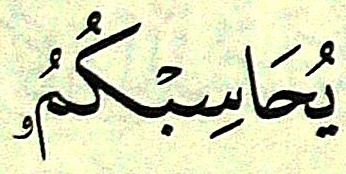 يُحَاسِبْكُمُۥ